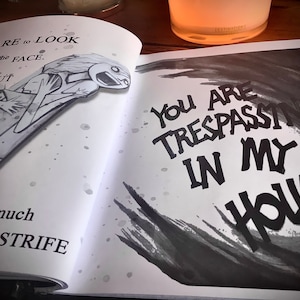 RE to LOOK
FACE.
much
STRIFE
YOU ARE
TRESPASSIN
IN MY
HOU